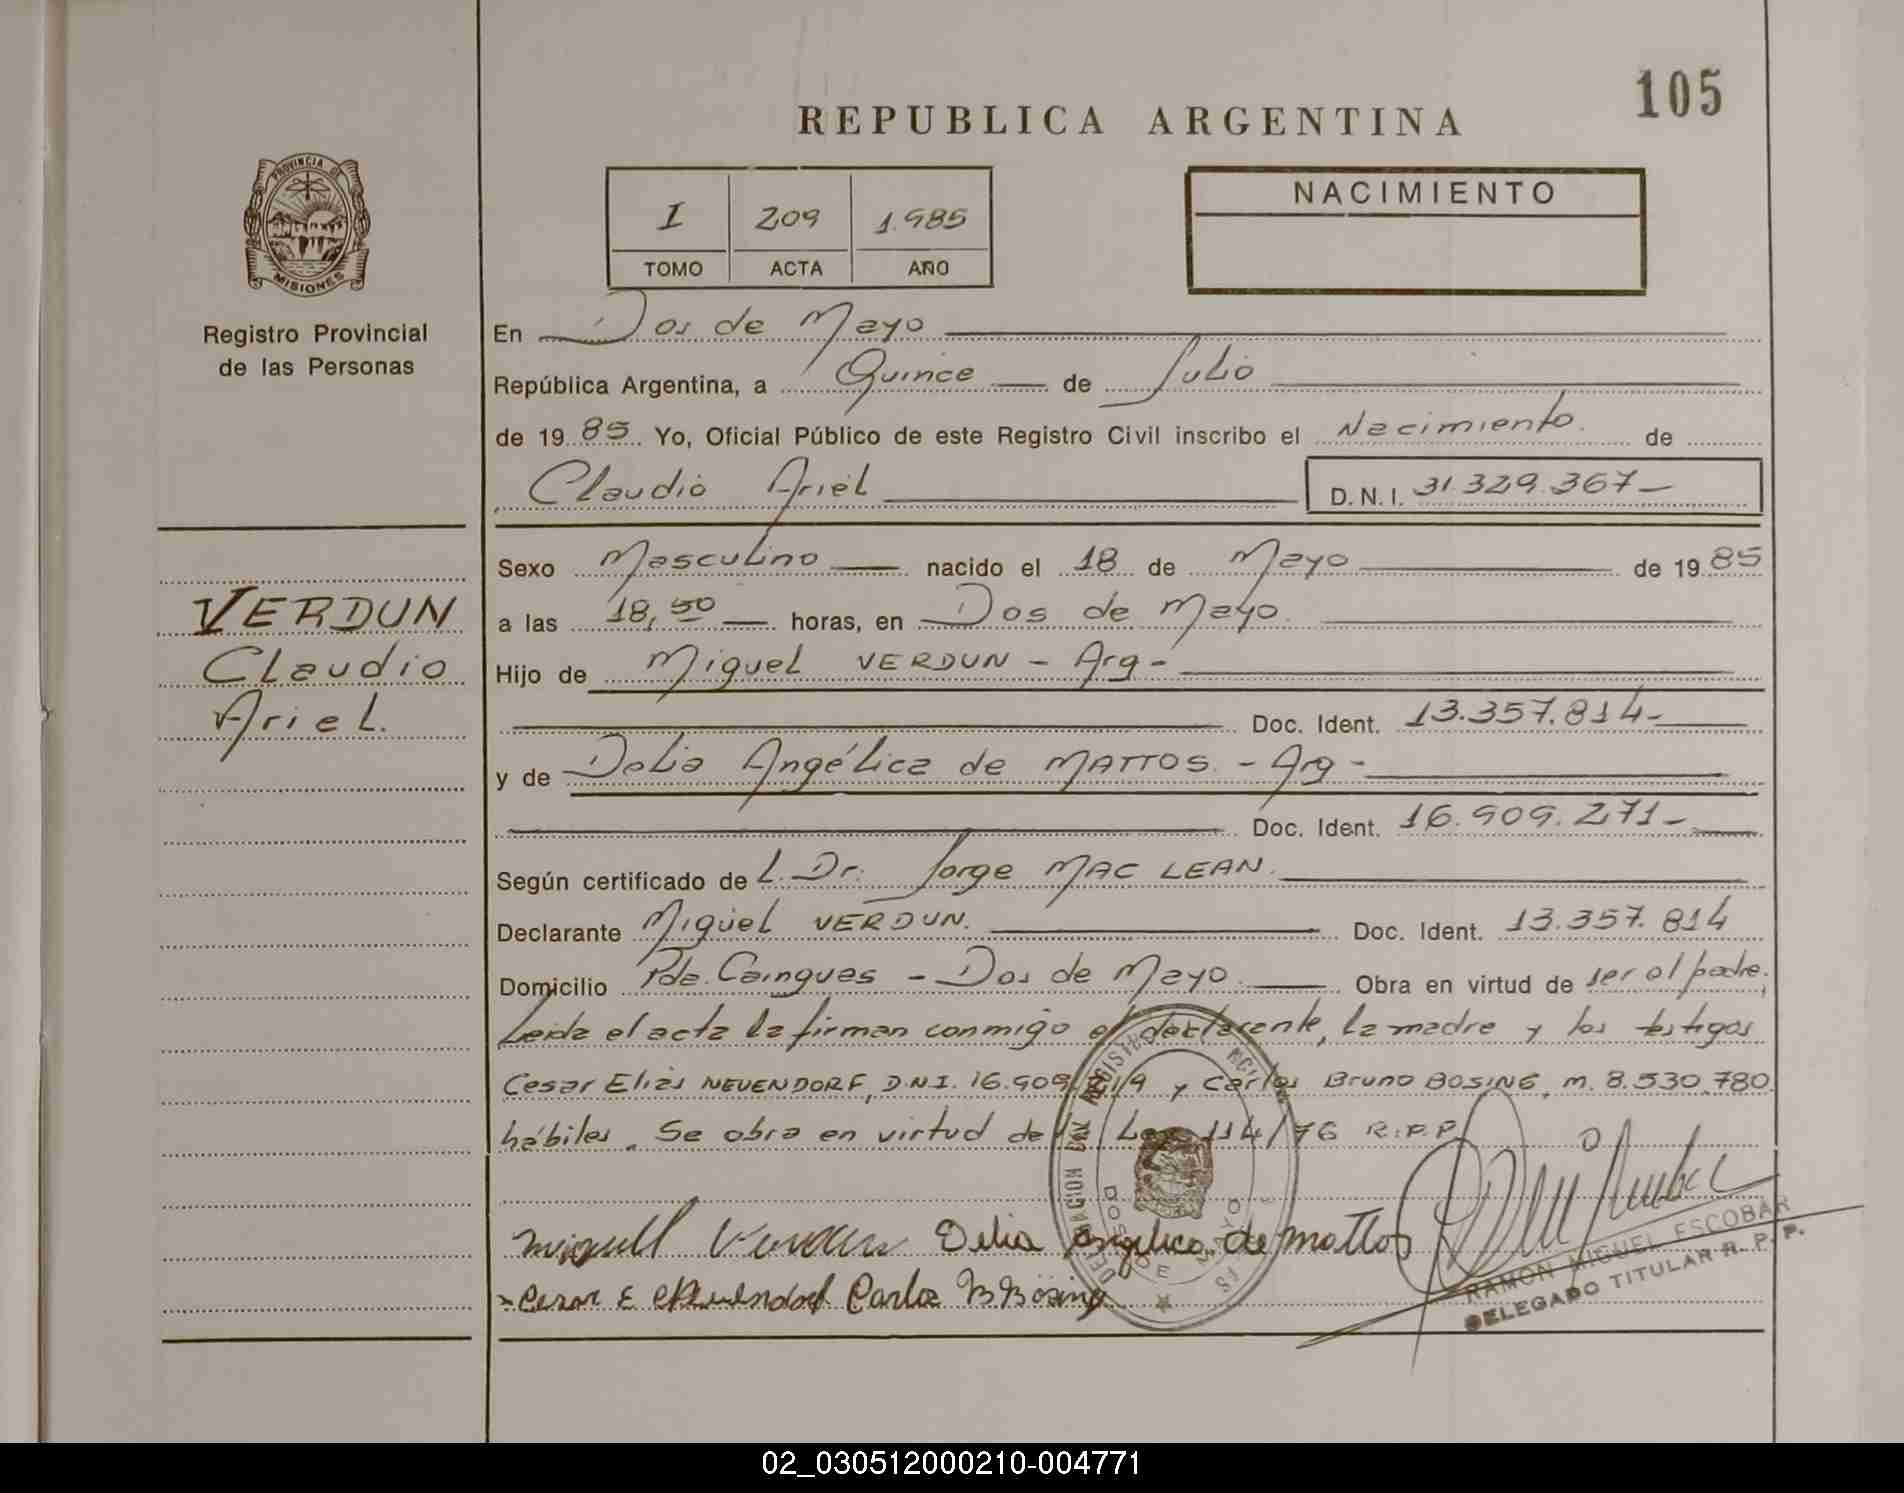 105
REPUBLICA ARGENTINA
PROVINCIA DE
MISIONES
Registro Provincial
de las Personas
I 209 1.985
TOMO ACTA AÑO
NACIMIENTO
En Dos de Mayo
República Argentina, a Quince de Julio
de 1985 Yo, Oficial Público de este Registro Civil inscribo el Nacimiento de
Claudio Ariel D.N.I. 31.329.367-
VERDUN
Claudio
Ariel.
Sexo Masculino nacido el 18 de Mayo de 1985
a las 18,50 horas, en Dos de Mayo.
Hijo de Miguel VERDUN - Arg-
Doc. Ident. 13.357.814-
y de Delia Angélica de MATTOS. - Arg-
Doc. Ident. 16.909.271-
Según certificado de L. Dr. Jorge MAC LEAN.
Declarante Miguel VERDUN. Doc. Ident. 13.357.814
Domicilio Pde. Caingues - Dos de Mayo. Obra en virtud de ser el padre.
Leida el acta la firman conmigo el declarante, la madre y los testigos
Cesar Elias NEUENDORF, D.N.I. 16.909. y Carlos Bruno BOSING, m. 8.530.780
hábiles. Se obra en virtud de la Ley 114/76 R.P.P.
Miguel Verdun Delia Angelica de Mattos
Cesar E Neuendorf Carlos B Bösing
DOS DE MAYO
RAMON MIGUEL ESCOBAR
DELEGADO TITULAR R. P. P.
02_030512000210-004771